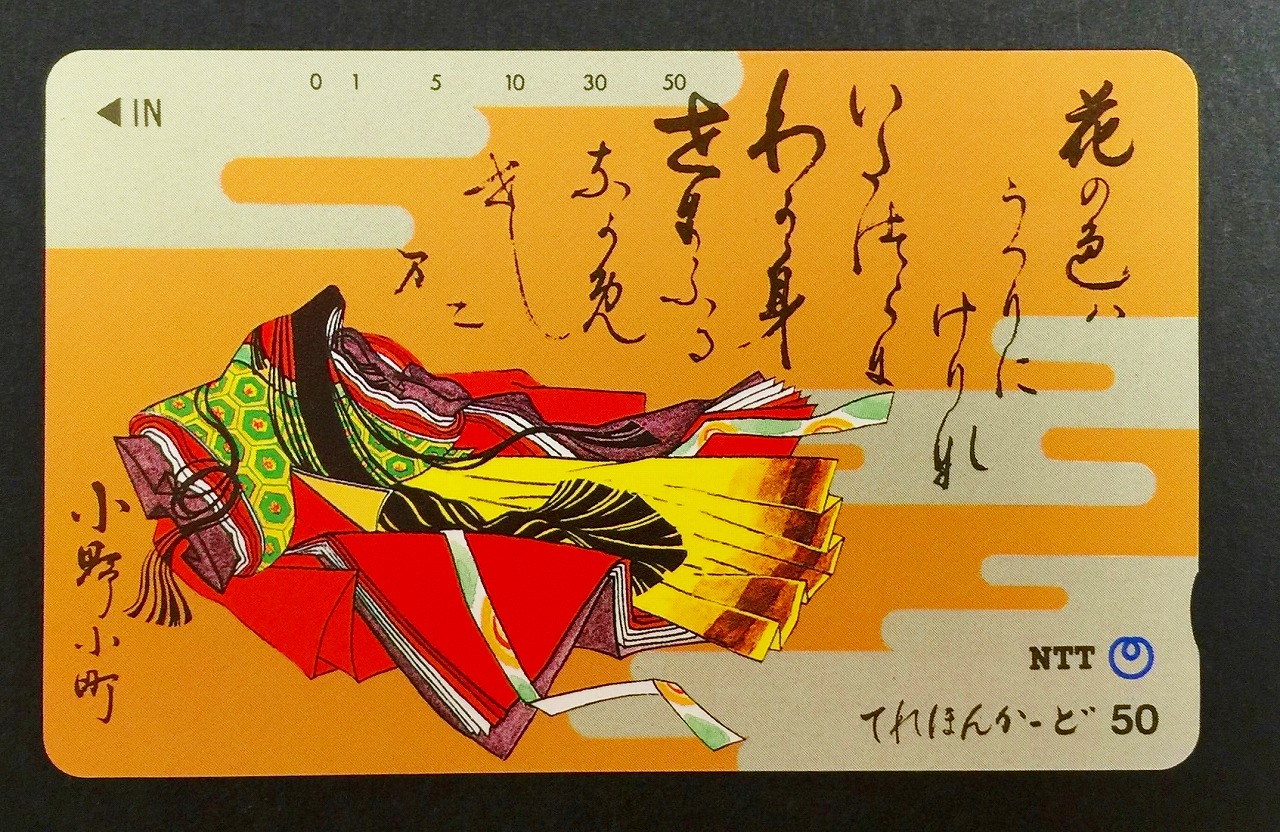 0 1 5 10 30 50
◀IN
花の色ハ
うつりに
けりな
いたつらに
わか身
世にふる
なか免
せし
万二
小野小町
NTT
てれほんかーど 50